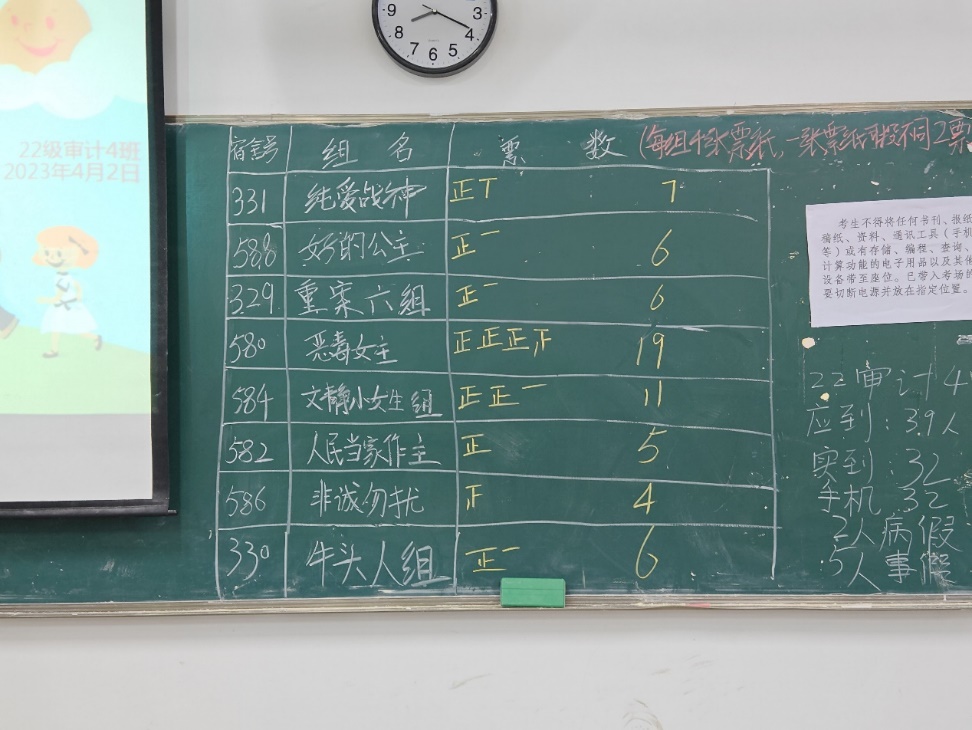 9
3
8
4
7
6
5
22级审计4班
2023年4月2日
宿舍号 组名 票数 (每组4张票纸,一张票纸可投不同2票
331 纯爱战神 正丅 7
588 奶的公主 正一 6
329 重案六组 正一 6
580 恶毒女主 正正正 19
584 文静小女生组 正正一 11
582 人民当家作主 正 5
586 非诚勿扰 4
330 牛头人组 正一 6
考生不得将任何书刊、报纸
稿纸、资料、通讯工具(手机
等)或有存储、编程、查询、
计算功能的电子用品以及其他
设备带至座位。已带入考场的
要切断电源并放在指定位置。
22审计4
应到:39人
实到:32
手机 32
2人病假
5人事假